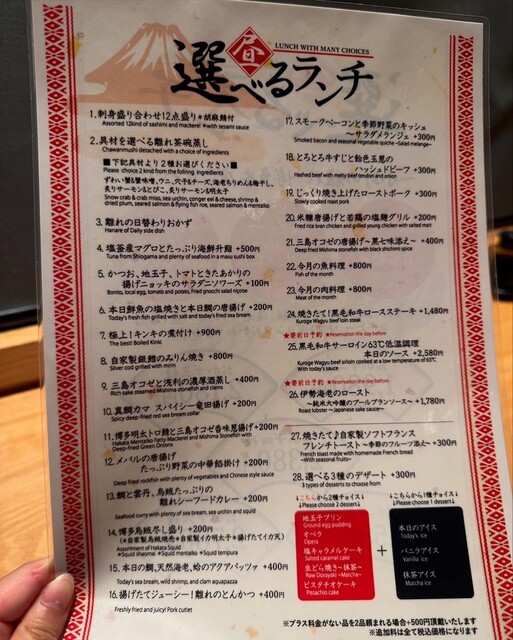 昼
LUNCH WITH MANY CHOICES
選べるランチ
1. 刺身盛り合わせ12点盛り＊胡麻鯖付
Assorted 12kind of sashimi and mackerel ＊with sesami sauce
2. 具材を選べる離れ茶碗蒸し
Chawanmushi detached with a choice of ingredients
■下記具材より2種お選びください■
Please choose 2 kind from the folliring ingredients
ずわい蟹＆蟹味噌、ウニ、穴子＆チーズ、海老もちりめん＆梅干し、
炙りサーモン＆とびこ、炙りサーモン＆明太子
Snow crab & crab miso, sea urchin, conger eel & cheese, shrimp &
dried plum, seared salmon & flying fish roe, seared salmon & mentaiko
3. 離れの日替わりおかず
Hanare of Daily side dish
4. 塩釜産マグロとたっぷり海鮮升鮨 +500円
Tuna from Shiogama and plenty of seafood in a masu sushi box
5. かつお、地玉子、トマトときたあかりの
揚げニョッキのサラダニソワーズ +100円
Bonito, local egg, tomato and potato, Fried gnocchi salad niçoise
6. 本日鮮魚の塩焼きと本日鯛の唐揚げ +200円
Today's fresh fish grilled with salt and today's fried sea bream
7. 極上！キンキの煮付け +900円
The best! Boiled Kinki
8. 自家製銀鱈のみりん焼き +800円
Silver cod grilled with mirin
9. 三島オコゼと浅利の濃厚酒蒸し +400円
Rich sake steamed Mishima stonefish and clams
10. 真鯛カマ スパイシー竜田揚げ +200円
Spicy deep-fried red sea bream collar
11. 博多明太トロ鯖と三島オコゼ香味葱揚げ +200円
Hakata Mentaiko Fatty Mackerel and Mishima Stonefish with
Deep-fried Green Onions
12. メバルの唐揚げ
たっぷり野菜の中華餡掛け +200円
Deep fried rockfish with plenty of vegetables and Chinese style sauce
13. 鯛と雲丹、烏賊たっぷりの
離れシーフードカレー +200円
Seafood curry with plenty of sea bream, sea urchin and squid
14. 博多烏賊尽し盛り +200円
(＊自家製烏賊焼売＊自家製イカ明太子＊揚げたてイカ天)
Assortment of Hakata Squid
＊Squid shaomai ＊Squid mentaiko ＊Squid tempura
15. 本日の鯛、天然海老、蛤のアクアパッツァ +400円
Today's sea bream, wild shrimp, and clam aquapazza
16. 揚げたてジューシー！離れのとんかつ +400円
Freshly fried and juicy! Pork cutlet
17. スモークベーコンと季節野菜のキッシュ
～サラダメランジェ +300円
Smoked bacon and seasonal vegetable quiche ~Salad melange~
18. とろとろ牛すじと飴色玉葱の
ハッシュドビーフ +300円
Hashed beef with melty beef tendon and onion
19. じっくり焼き上げたローストポーク +300円
Slowly cooked roast pork
20. 米糠唐揚げと若鶏の塩麹グリル +200円
Fried rice bran chicken and grilled young chicken with salted malt
21. 三島オコゼの唐揚げ～黒七味添え～ +400円
Deep-fried Mishima stonefish with black shichimi spice
22. 今月の魚料理 +800円
Fish of the month
23. 今月の肉料理 +800円
Meat of the month
24. 焼きたて！黒毛和牛ロースステーキ +1,480円
Kuroge Wagyu beef loin steak
★要前日予約 ★Reservation the day before
25. 黒毛和牛サーロイン63℃低温調理
本日のソース +2,580円
Kuroge Wagyu beef sirloin cooked at a low temperature of 63℃
With today's sauce
★要前日予約 ★Reservation the day before
26. 伊勢海老のロースト
～純米大吟醸のブールブランソース～ +1,780円
Roast lobster ~Japanese sake sauce~
27. 焼きたて♪自家製ソフトフランス
フレンチトースト～季節のフルーツ添え～ +300円
French toast made with homemade French bread
~With seasonal fruits~
28. 選べる3種のデザート +300円
3 types of desserts to choose from
↓こちらから2種チョイス↓
↓Please choose 2 dessert↓
地玉子プリン
Ground egg pudding
オペラ
Opera
塩キャラメルケーキ
Salted caramel cake
生どら焼き～抹茶～
Raw Dorayaki ~Matcha~
ピスタチオケーキ
Pistachio cake
+
↓こちらから1種チョイス↓
↓Please choose 1 dessert↓
本日のアイス
Today's ice
バニラアイス
Vanilla ice
抹茶アイス
Matcha ice
※プラス料金がない品を2品頼まれる場合+500円頂戴いたします
※追加料は全て税込価格になります